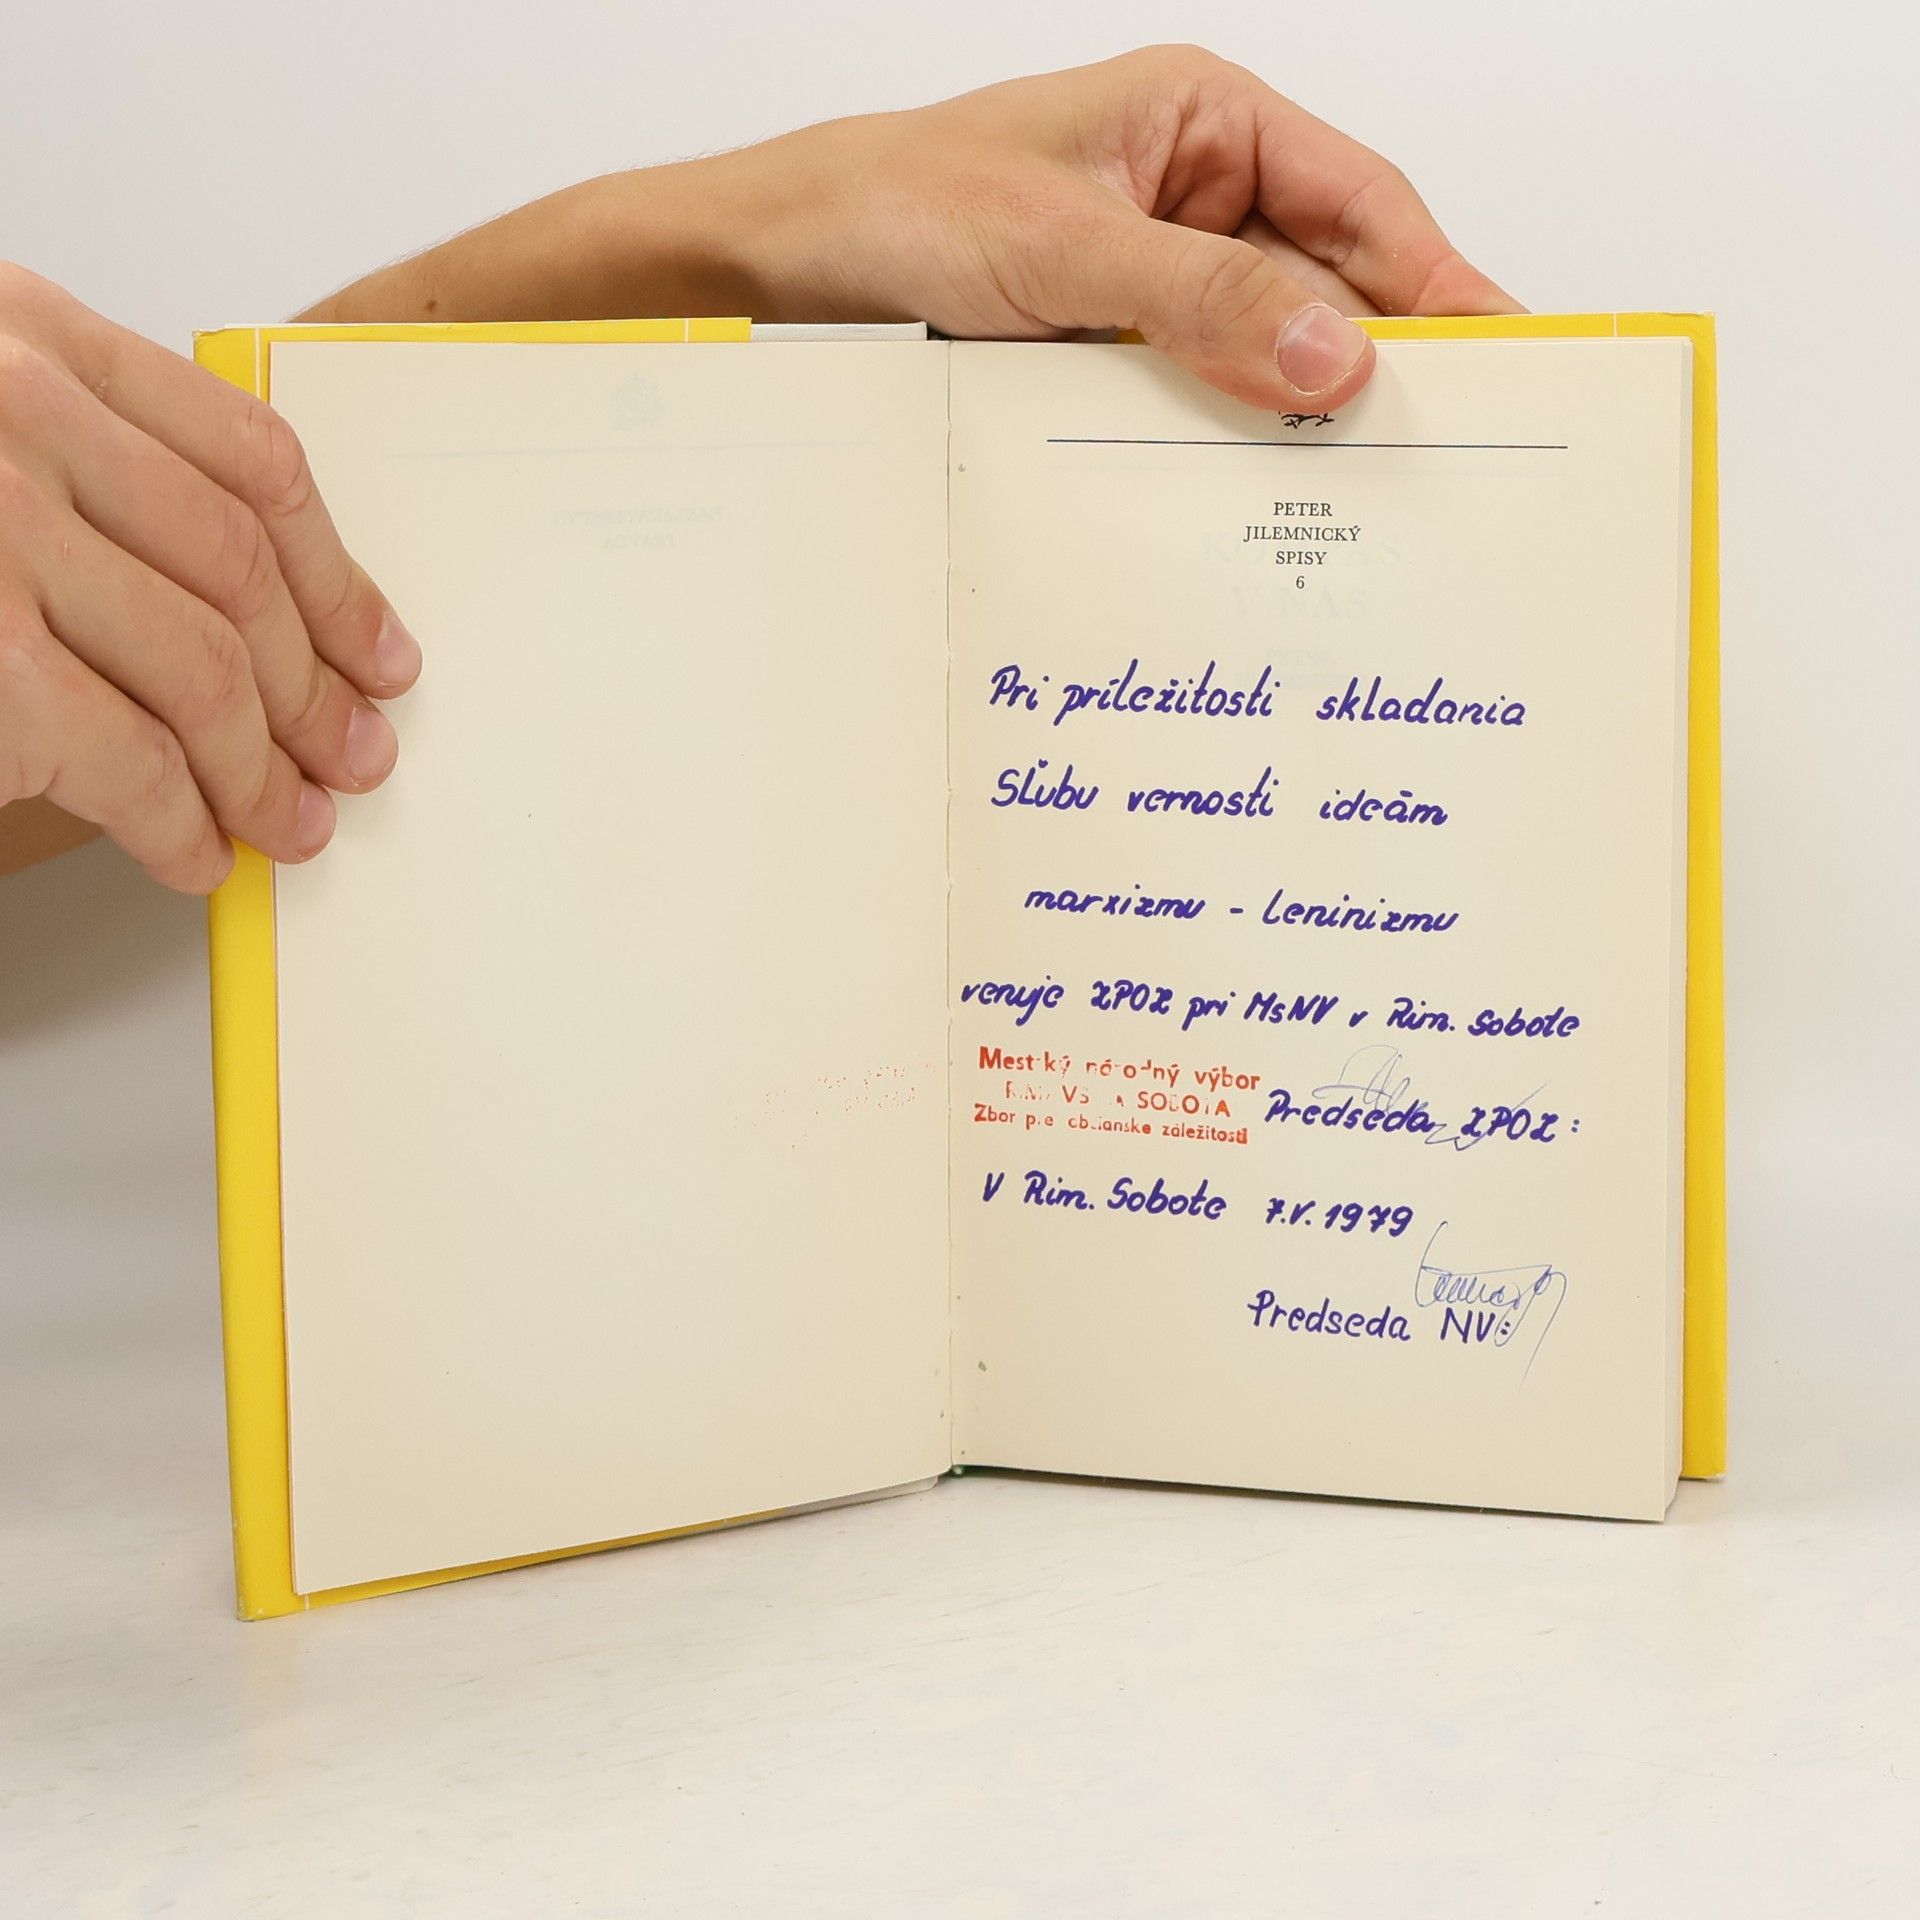 PETER
JILEMNICKÝ
SPISY
6
Pri príležitosti skladania
Sľubu vernosti ideám
marxizmu - leninizmu
venuje ZPOZ pri MsNV v Rim. Sobote
Mestský národný výbor
RIMAVSKÁ SOBOTA
Zbor pre občianske záležitosti
Predseda ZPOZ:
V Rim. Sobote 7.V.1979
Predseda NV: